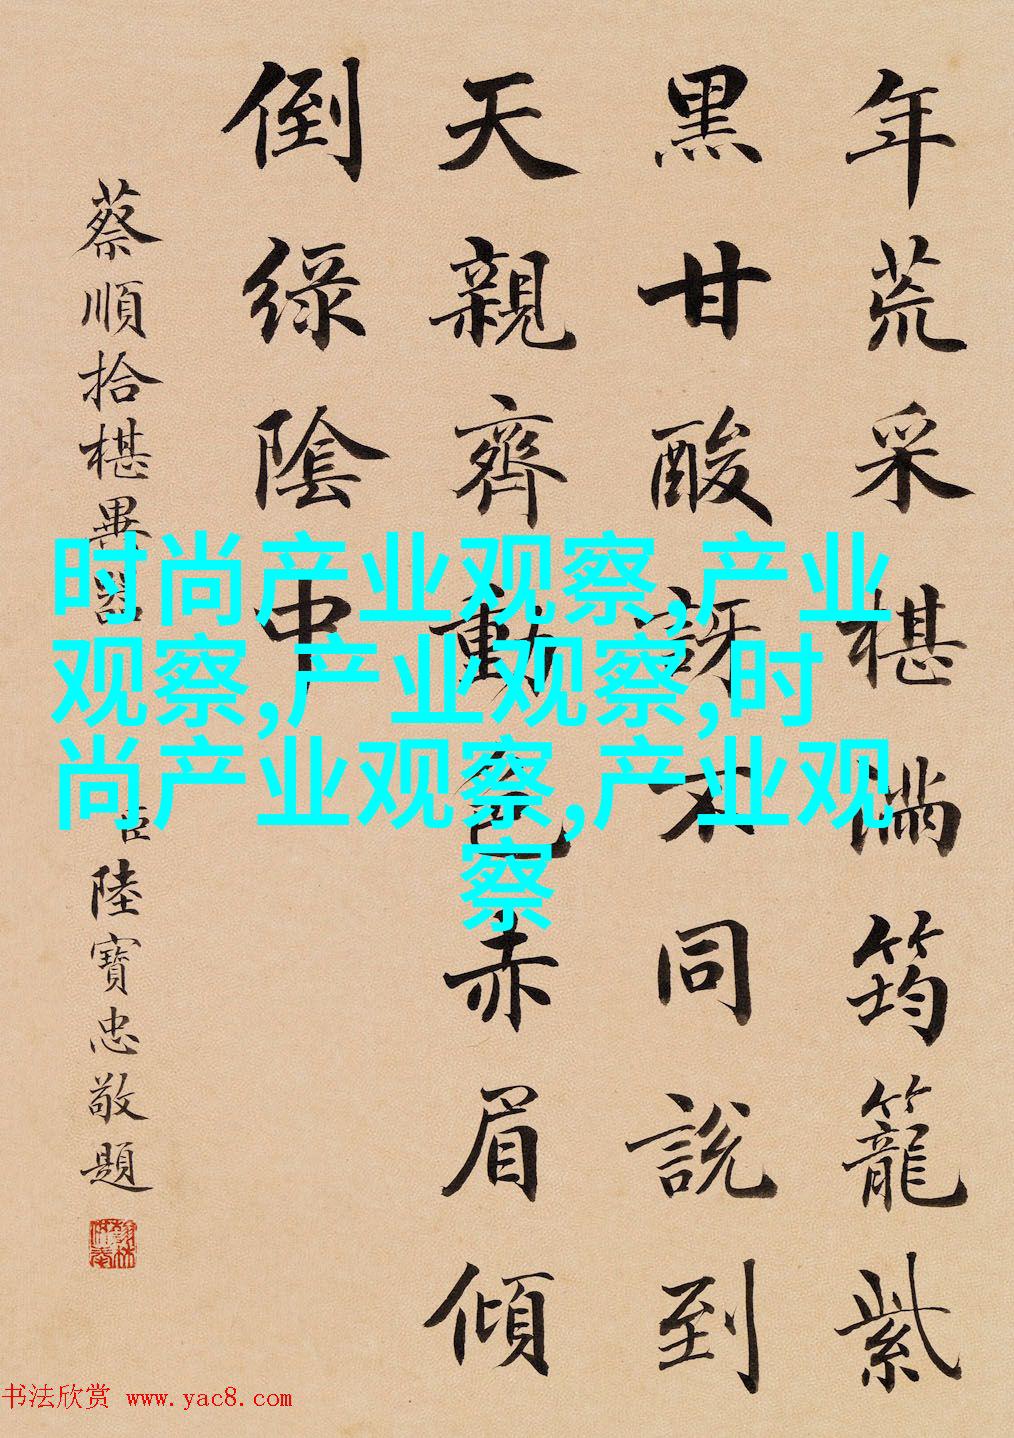 年荒采椹滿筠籠紫
黑甘酸訝不同說到
天親齊動色赤眉傾
倒綠陰中
蔡順拾椹異器
臣陸寶忠敬題
时尚产业观察,产业
观察,产业观察,时
尚产业观察,产业观
察
书法欣赏 www.yac8.com